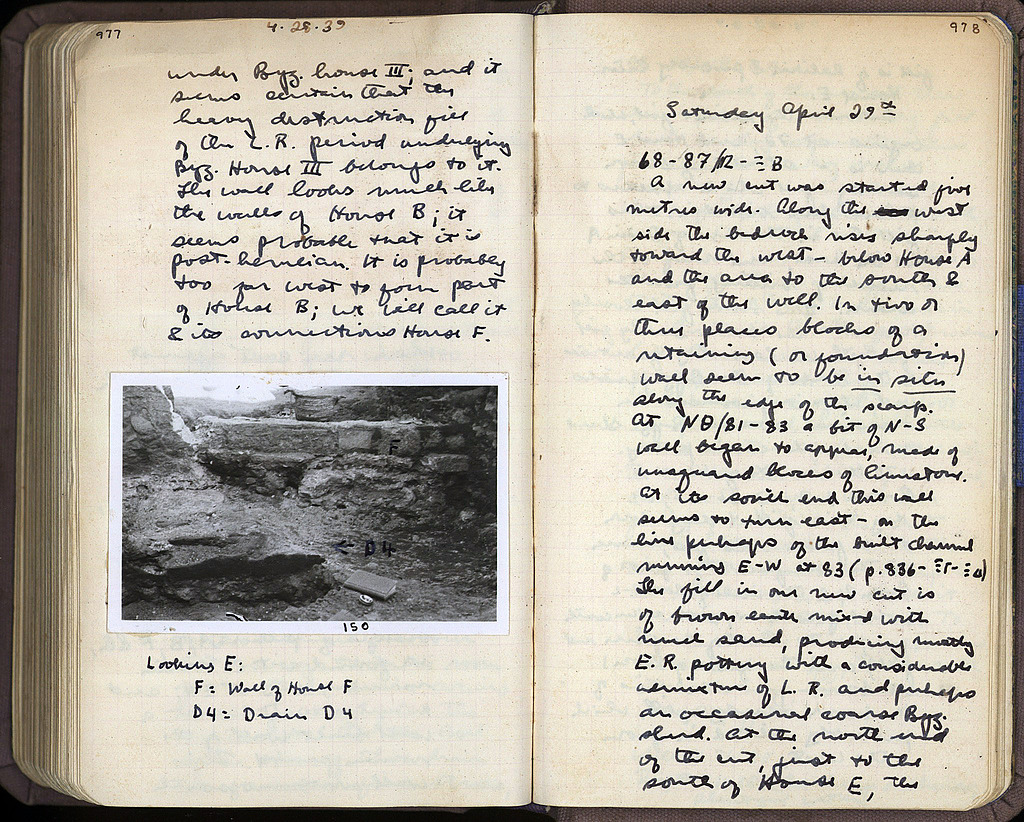 977
4-28-39
under Byz. house III; and it
seems certain that the
heavy destruction fill
of the L.R. period underlying
Byz. House III belongs to it.
The wall looks much like
the walls of House B; it
seems probable that it is
post-herulian. It is probably
too far west to form part
of House B; we will call it
& its connections House F.
F
← D4
150
Looking E:
F = Wall of House F
D4 = Drain D4
978
Saturday April 29th
68-87/
A new cut was started five
metres wide. Along the west
side the bedrock rises sharply
toward the west - below House A
and the area to the south &
east of the well. In two or
three places blocks of a
retaining (or foundation)
wall seem to be in situ
along the edge of the scarp.
At ΝΘ/81-83 a bit of N-S
wall began to appear, made of
unsquared blocks of limestone.
At its south end this wall
seems to turn east - on the
line perhaps of the built channel
running E-W at 83 (p. 836-
The fill in our new cut is
of brown earth mixed with
much sand, producing mostly
E.R. pottery with a considerable
admixture of L.R. and perhaps
an occasional coarse Byz.
sherd. At the north end
of the cut, just to the
south of House E, the